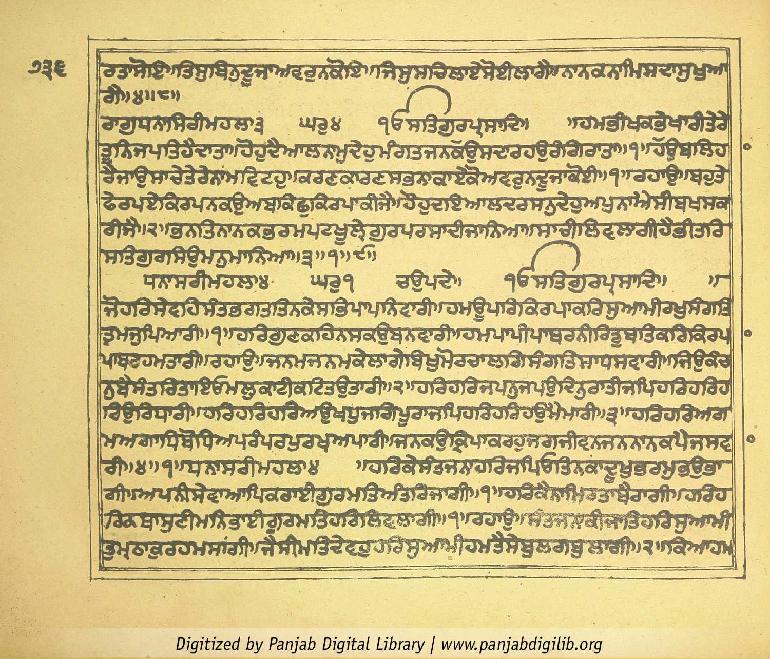 ੭੩੬
ਰਤਾਸੋਇ॥ਤਿਸੁਬਿਨੁਦੂਜਾਅਵਰੁਨਕੋਇ॥ਜਿਸੁਸਚਿਲਾਏਸੋਈਲਾਗੈ॥ਨਾਨਕਨਾਮਿਸਦਾਸੁਖੁਆ
ਗੈ॥੪॥੮॥
ਰਾਗੁਧਨਾਸਿਰੀਮਹਲਾ੩ ਘਰੁ੪ ੴਸਤਿਗੁਰਪ੍ਰਸਾਦਿ॥ ॥ਹਮਭੀਖਕਭੇਖਾਰੀਤੇਰੇ
ਤੂਨਿਜਪਤਿਹੈਦਾਤਾ॥ਹੋਹੁਦੈਆਲਨਾਮੁਦੇਹੁਮੰਗਤਜਨਕੰਉਸਦਾਰਹਉਰੰਗਿਰਾਤਾ॥੧॥ਹੰਉਬਲਿਹ
ਰੈਜਾਉਸਾਚੇਤੇਰੇਨਾਮਵਿਟਹੁ॥ਕਰਣਕਾਰਣਸਭਨਾਕਾਏਕੋਅਵਰੁਨਦੂਜਾਕੋਈ॥੧॥ਰਹਾਉ॥ਬਹੁਤੇ
ਫੇਰਪਏਕਿਰਪਨਕਉਅਬਕਿਛੁਕਿਰਪਾਕੀਜੈ॥ਹੋਹੁਦਇਆਲਦਰਸਨੁਦੇਹੁਅਪੁਨਾਐਸੀਬਖਸਕ
ਰੀਜੈ॥੨॥ਭਨਤਿਨਾਨਕਭਰਮਪਟਖੂਲੇਗੁਰਪਰਸਾਦੀਜਾਨਿਆ॥ਸਾਚੀਲਿਵਲਾਗੀਹੈਭੀਤਰਿ
ਸਤਿਗੁਰਸਿਉਮਨੁਮਾਨਿਆ॥੩॥੧॥੯॥
ਧਨਾਸਰੀਮਹਲਾ੪ ਘਰੁ੧ ਚਉਪਦੇ॥ ੴਸਤਿਗੁਰਪ੍ਰਸਾਦਿ॥ ॥
ਜੋਹਰਿਸੇਵਹਿਸੰਤਭਗਤਤਿਨਕੇਸਭਿਪਾਪਨਿਵਾਰੀ॥ਹਮਊਪਰਿਕਿਰਪਾਕਰਿਸੁਆਮੀਰਖੁਸੰਗਤਿ
ਤੁਮਜੁਪਿਆਰੀ॥੧॥ਹਰਿਗੁਣਕਹਿਨਸਕਉਬਨਵਾਰੀ॥ਹਮਪਾਪੀਪਾਥਰਨੀਰਿਡੁਬਤਕਰਿਕਿਰਪ
ਪਾਖਣਹਮਤਾਰੀ॥ਰਹਾਉ॥ਜਨਮਜਨਮਕੇਲਾਗੇਬਿਖੁਮੋਰਚਾਲਗਿਸੰਗਤਿਸਾਧਸਵਾਰੀ॥ਜਿਉਕੰਚ
ਨੁਬੈਸੰਤਰਿਤਾਇਓਮਲੁਕਾਟੀਕਟਿਤਉਤਾਰੀ॥੨॥ਹਰਿਹਰਿਜਪਨੁਜਪਉਦਿਨੁਰਾਤੀਜਪਿਹਰਿਹਰਿਹ
ਰਿਉਰਿਧਾਰੀ॥ਹਰਿਹਰਿਹਰਿਅਉਖਧੁਜਗਿਪੂਰਾਜਪਿਹਰਿਹਰਿਹਉਮੈਮਾਰੀ॥੩॥ਹਰਿਹਰਿਅਗ
ਮਅਗਾਧਿਬੋਧਿਅਪਰੰਪਰਪੁਰਖਅਪਾਰੀ॥ਜਨਕਉਕ੍ਰਿਪਾਕਰਹੁਜਗਜੀਵਨਜਨਨਾਨਕਪੈਜਸਵ
ਰੀ॥੪॥੧॥ਧਨਾਸਰੀਮਹਲਾ੪ ॥ਹਰਿਕੇਸੰਤਜਨਾਹਰਿਜਪਿਓਤਿਨਕਾਦੂਖੁਭਰਮੁਭਉਭਾ
ਗੀ॥ਅਪਨੀਸੇਵਾਆਪਿਕਰਾਈਗੁਰਮਤਿਅੰਤਰਿਜਾਗੀ॥੧॥ਹਰਿਕੈਨਾਮਿਰਤਾਬੈਰਾਗੀ॥ਹਰਿਹ
ਰਿਕਥਾਸੁਣੀਮਨਿਭਾਈਗੁਰਮਤਿਹਰਿਲਿਵਲਾਗੀ॥੧॥ਰਹਾਉ॥ਸੰਤਜਨਾਕੀਜਾਤਿਹਰਿਸੁਆਮੀ
ਤੁਮ੍ਹਠਾਕੁਰਹਮਸਾਂਗੀ॥ਜੈਸੀਮਤਿਦੇਵਹੁਹਰਿਸੁਆਮੀਹਮਤੈਸੇਬੁਲਗਬੁਲਾਗੀ॥੨॥ਕਿਆਹਮ
Digitized by Panjab Digital Library | www.panjabdigilib.org